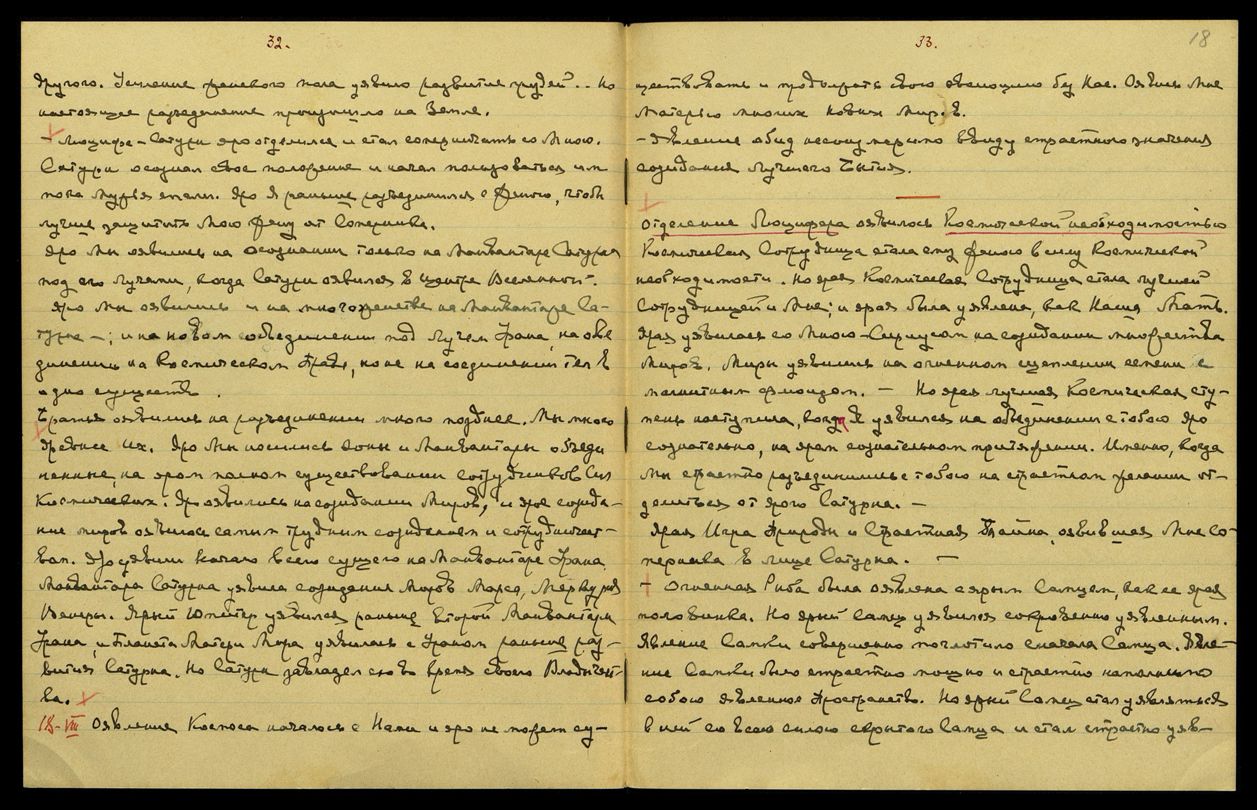 32.
другого. Усиление женского пола уявило развитие грудей... Но
настоящее разъединение произошло на Земле.
– Люцифер – Сатурн яро отделился и стал соперничать со Мною.
Сатурн осознал свое положение и начал пользоваться им
пока Мы были. Яро Я раньше разъединился с Женою, чтобы
лучше защитить Мою Жену от Соперника.
Яро Мы явились на осознании только на Манвантаре Сатурна
под его лучами, когда Сатурн оявился в центре Вселенной.
Яро Мы оявились и на многоженстве на Манвантаре Са-
турна –; и на новом объединении под лучом Урана, на объе
динении на Космическом Праве, но не на соединении Тел в
одно существо.
Братья оявились на разъединении много позднее. Мы много
древнее их. Яро Мы носились эоны и Манвантары объеди
ненные, на яром полном существовании сотрудников Сил
Космических. Яро оявились на созидании Миров, и ярое созида-
ние миров оявилось самым трудным созиданием и сотрудничест-
вом. Яро уявили начало всего сущего на Манвантаре Урана.
Манвантара Сатурна уявила создания Миров Марса, Меркурия
Венеры. Ярый Юпитер уявился раньше Второй Манвантары
Урана, и Планета Матери Мира уявилась с Ураном раньше раз-
вития Сатурна. Но Сатурн завладел ею во время своего Владычест-
ва.
18-VIII Оявление Космоса началось с Нами и яро не может су-
33.
18
ществовать и продвигать свою эволюцию без Нас. Оявись Мне
Матерью многих Новых Миров.
– Явление обид несоизмеримо ввиду страстного значения
созидания лучшего Бытия.
Отделение Люцифера оявилось Космической необходимостью
Космическая Сотрудница стала ему женою в силу Космической
необходимости. Но ярая Космическая Сотрудница стала лучшей
Сотрудницей и Мне; и ярая была уявлена, как Наша Мать.
Ярая уявилась со Мною – Сириусом на созидании множества
Миров. Миры уявились на огненном сцеплении семени с
магнитным флюидом. – Но ярая лучшая Космическая сту-
пень наступила, когда Я уявился на объединении с тобою яро
сознательно, на яром сознательном притяжении. Именно, когда
Мы страстно разъединились с тобою на страстном желании от-
делиться от ярого Сатурна. –
Ярая Игра Природы и Страстная Тайна, оявившая Мне Со-
перника в лице Сатурна. –
– Огненная Рыба была оявлена с ярым Самцом, как ее ярая
половинка. Но ярый самец уявился сокровенно уявленным.
Явление Самки совершенно поглотило сначала Самца. Явле-
ние Самки было страстно мощно и страстно наполнило
собою явленное Пространство. Но ярый Самец стал уявляться
в ней со всею силою скрытого Самца и стал страстно уяв-